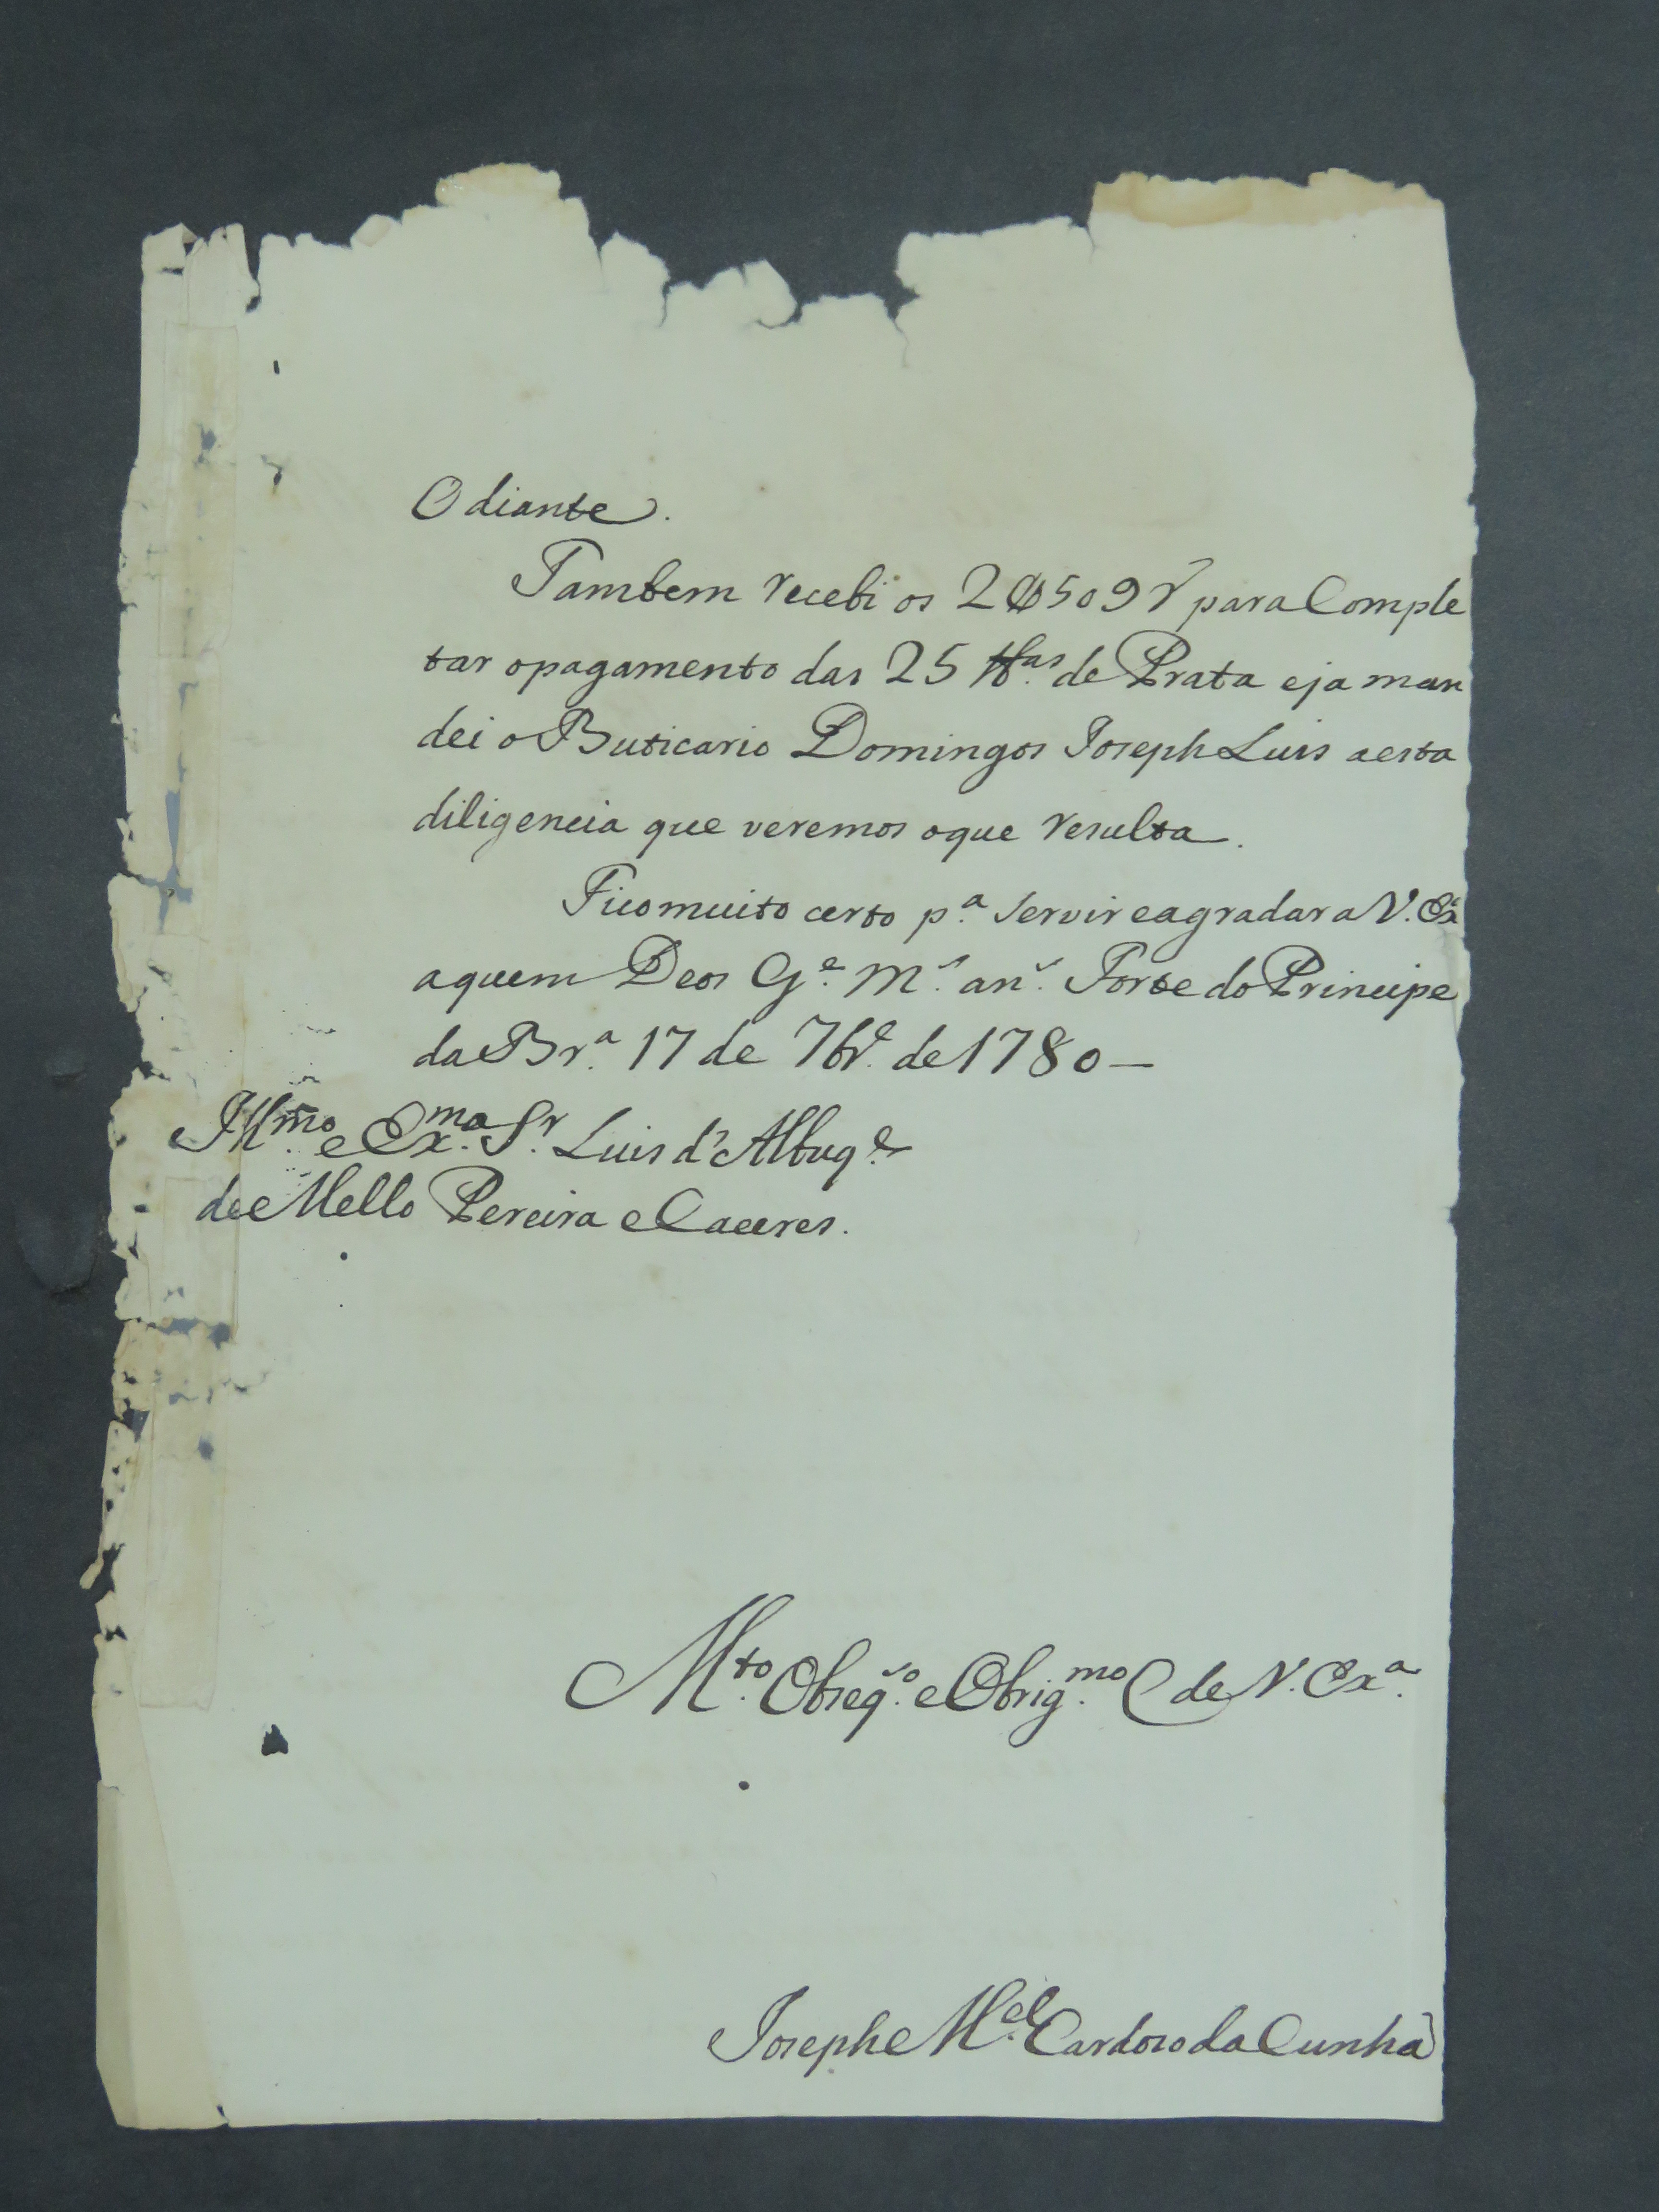 Odiante.
Tambem recebi os 2$509 r̃ para Comple
tar opagamento das 25 lb.as de Prata eja man
dei o Buticario Domingos Joseph Luis aesta
diligencia que veremos oque resulta.
Fico muito certo p.a servir eagradar a V. Ex.a
aquem Deos G.e m.s an.s Forte do Principe
da Br.a 17 de 7br.e de 1780 —
Ill.mo e Ex.mo S.r Luis d'Albuq.e
de Mello Pereira e Caceres.
M.to Obseq.so e Obrig.mo C de V. Ex.a
Joseph M.el Cardoso da Cunha